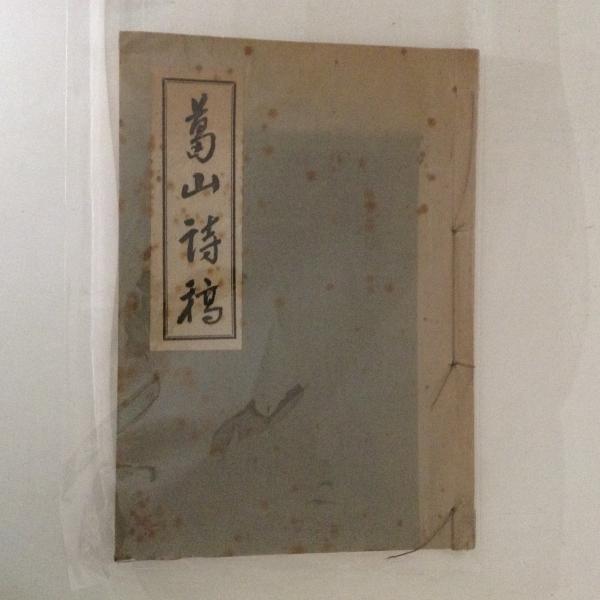 葛山詩稿